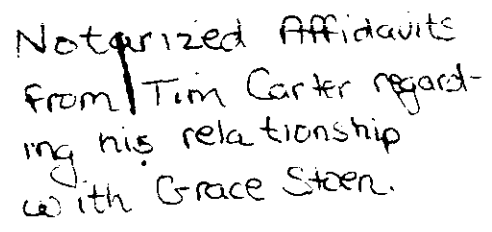 Notarized Affidavits
from Tim Carter regard-
ing his relationship
with Grace Stoen.